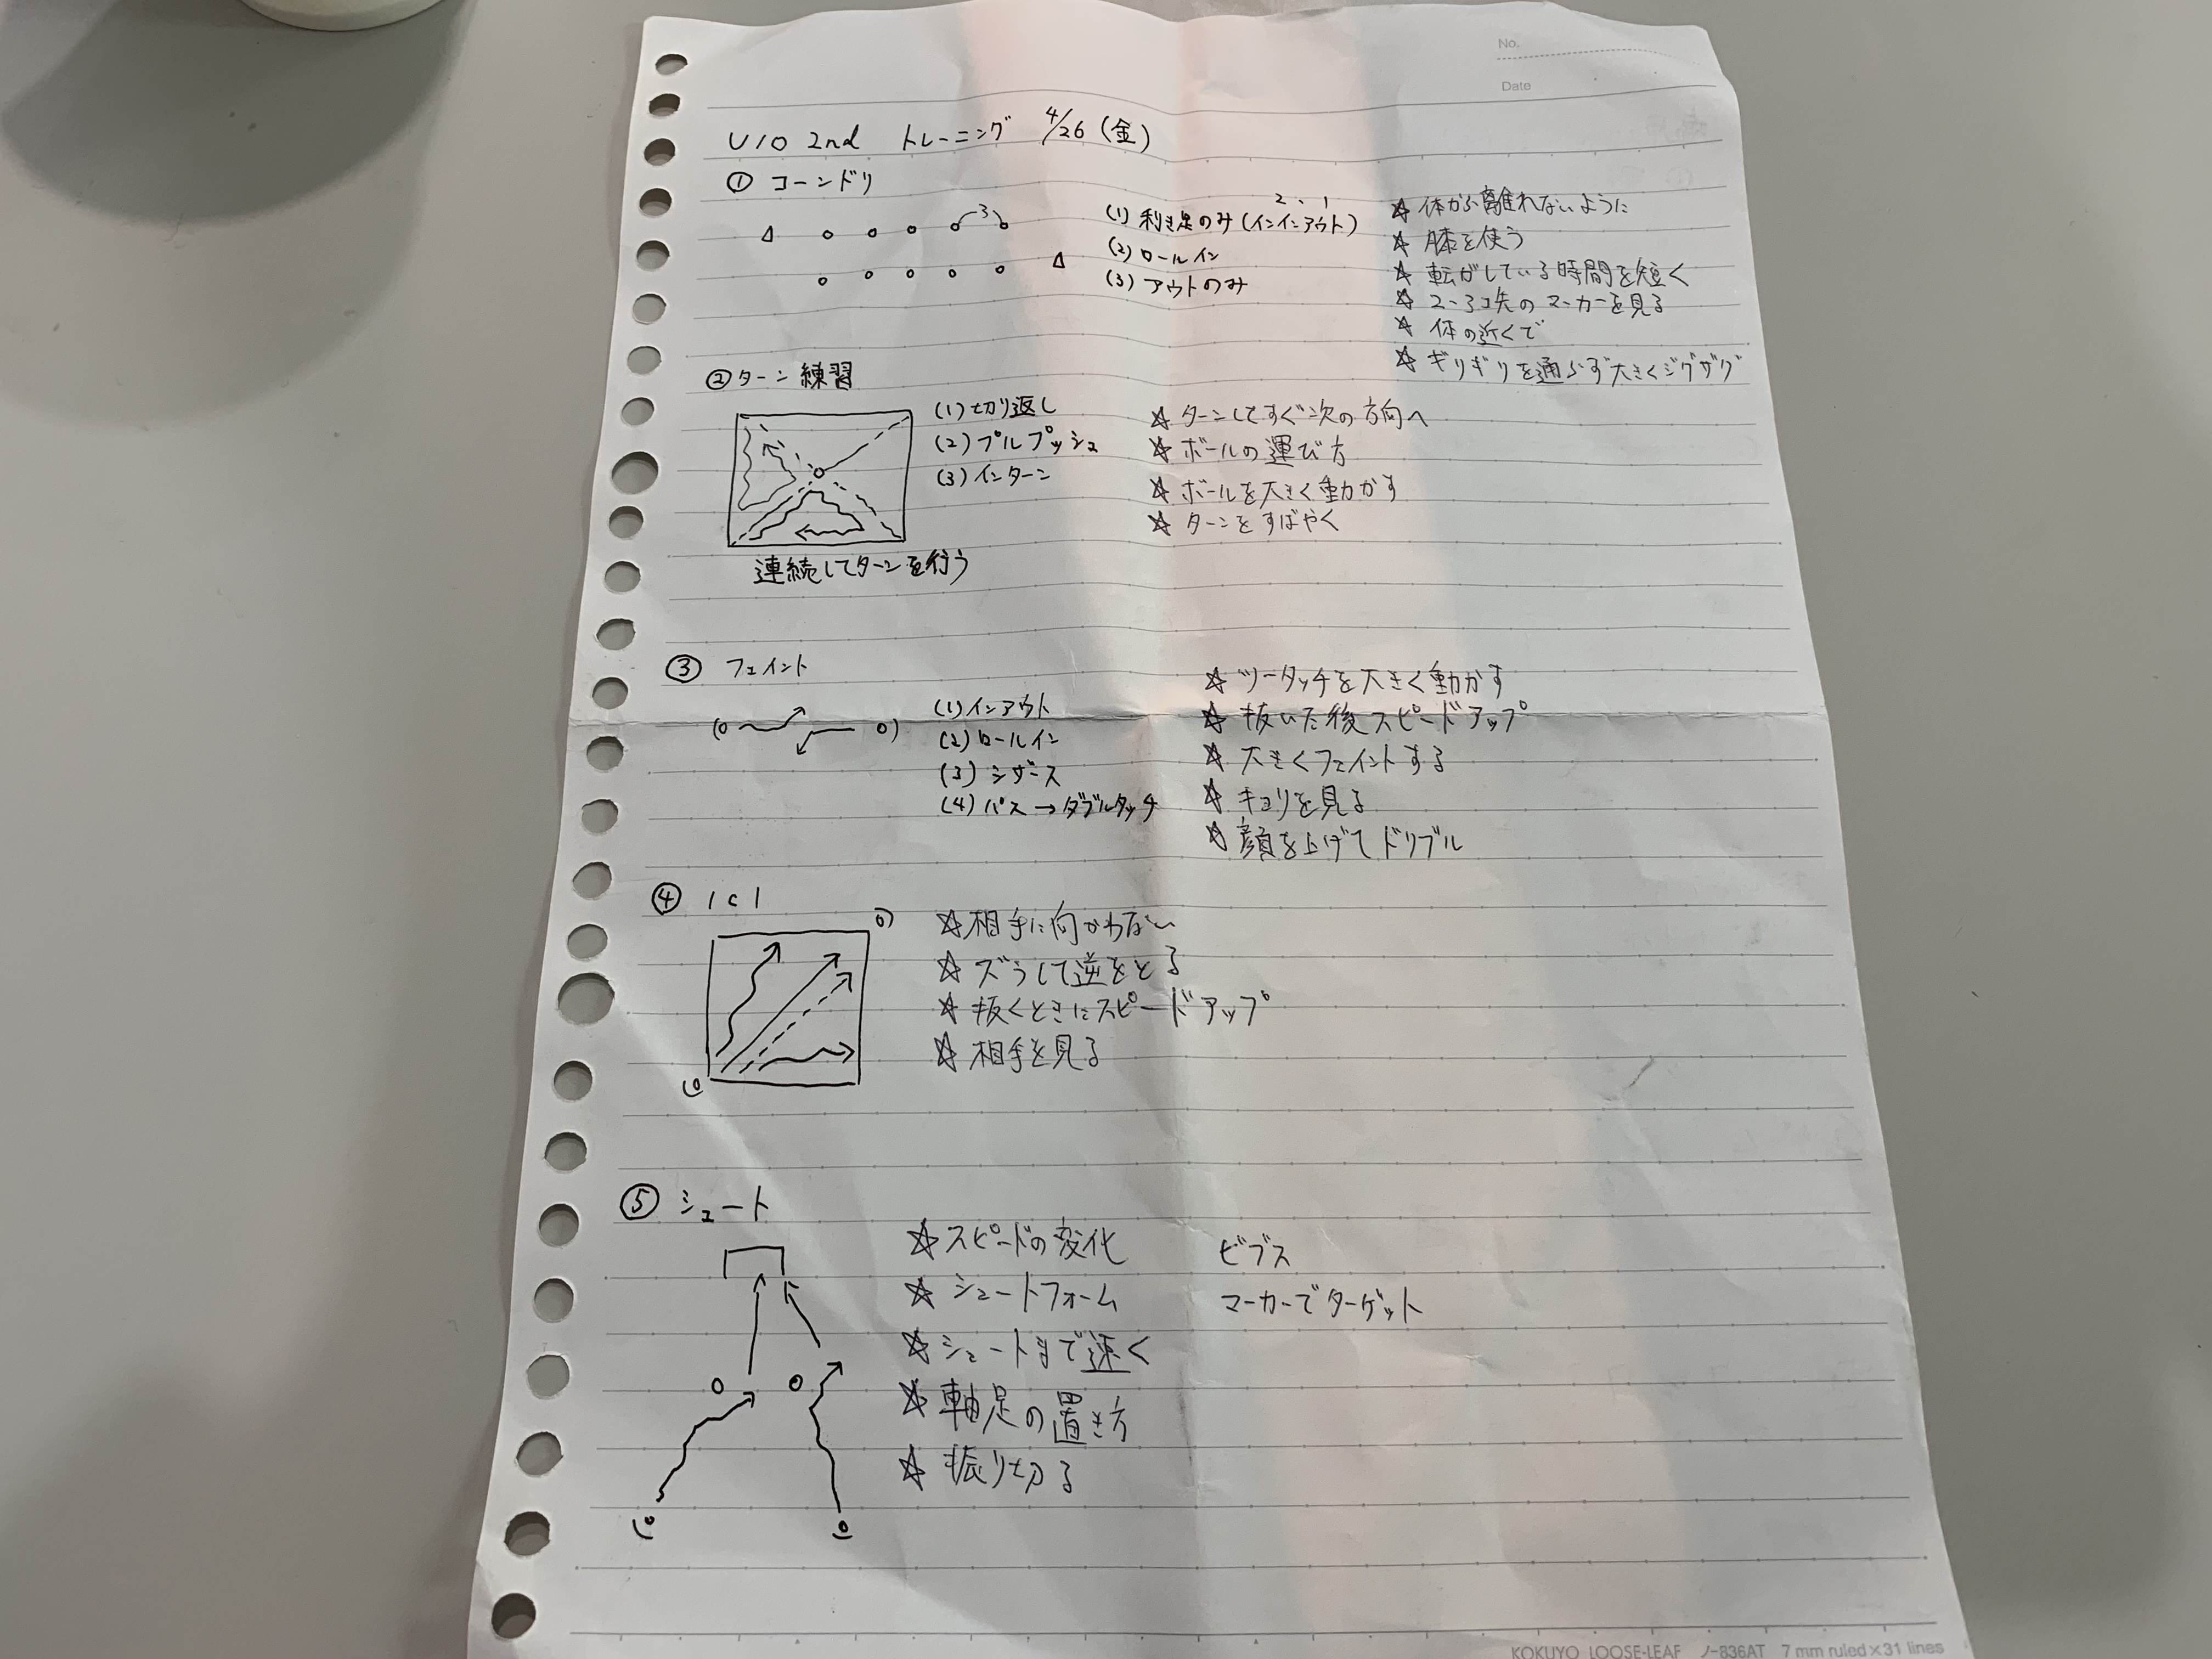 No.
Date
U10 2nd トレーニング 4/26 (金)
① コーンドリ
3
2、1
(1) 利き足のみ (インインアウト)
(2) ロールイン
(3) アウトのみ
☆ 体から離れないように
☆ 膝を使う
☆ 転がしている時間を短く
☆ 2~3コ先のマーカーを見る
☆ 体の近くで
☆ ギリギリを通らず大きくジグザグ
② ターン練習
(1) 切り返し
(2) プルプッシュ
(3) インターン
☆ ターンしてすぐ次の方向へ
☆ ボールの運び方
☆ ボールを大きく動かす
☆ ターンをすばやく
連続してターンを行う
③ フェイント
(1) インアウト
(2) ロールイン
(3) シザース
(4) パス→ダブルタッチ
☆ ツータッチを大きく動かす
☆ 抜いた後スピードアップ
☆ 大きくフェイントする
☆ キョリを見る
☆ 顔を上げてドリブル
④ 1c1
☆ 相手に向かわない
☆ ズらして逆をとる
☆ 抜くときにスピードアップ
☆ 相手を見る
⑤ シュート
☆ スピードの変化
☆ シュートフォーム
☆ シュートまで速く
☆ 軸足の置き方
☆ 振り切る
ビブス
マーカーでターゲット
KOKUYO LOOSE-LEAF ノ-836AT 7 mm ruled×31 lines